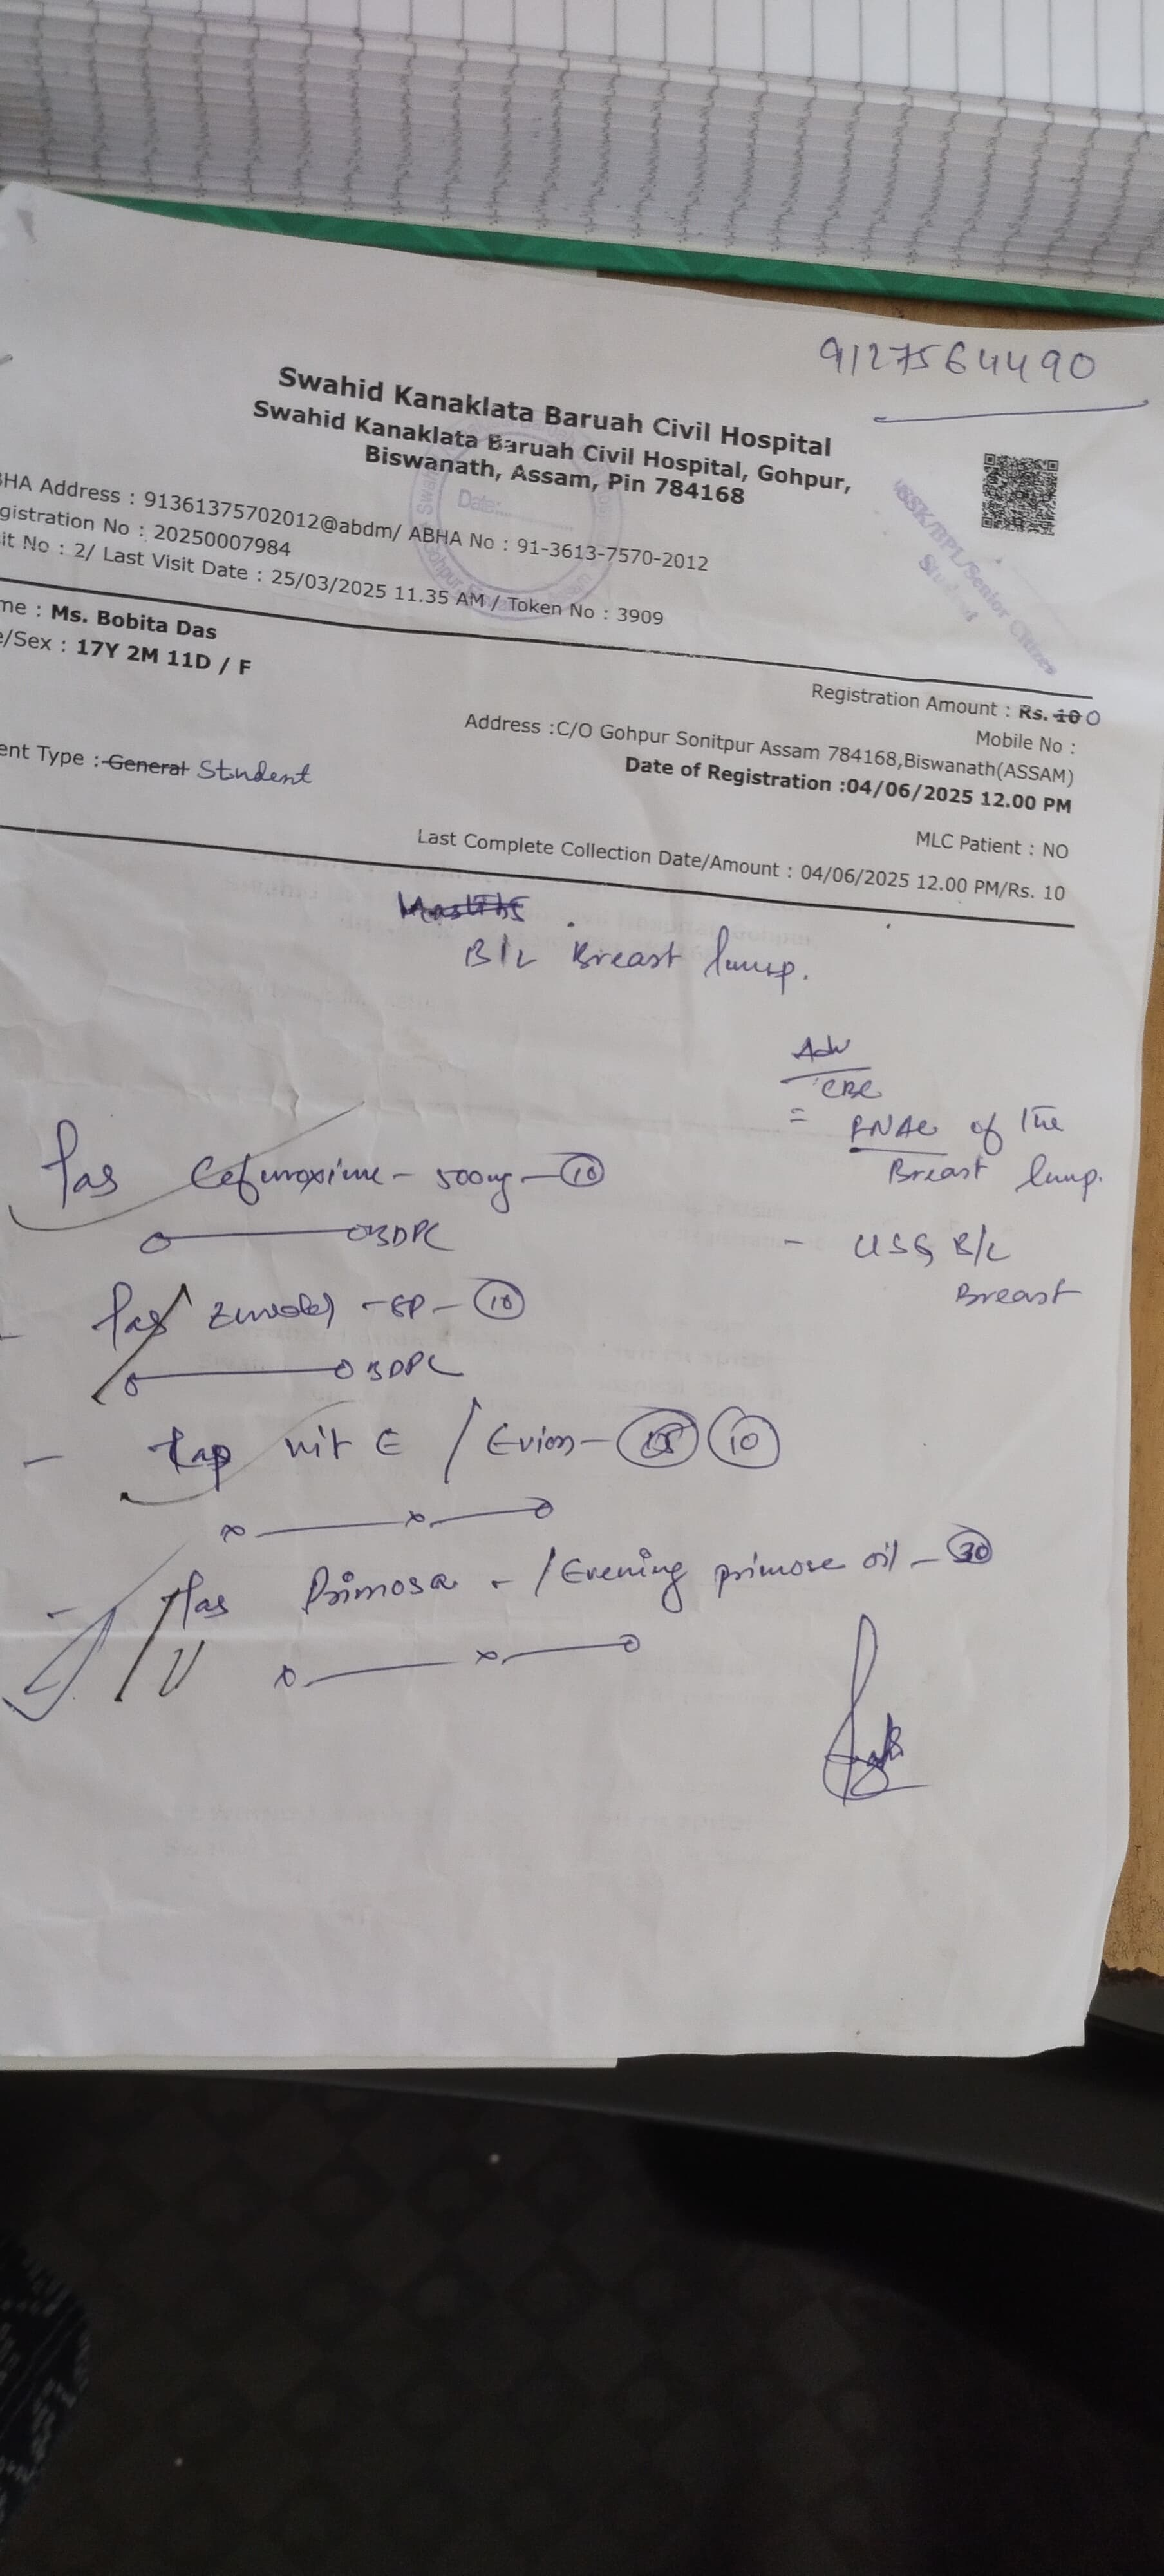 9127564490
Swahid Kanaklata Baruah Civil Hospital
Swahid Kanaklata Baruah Civil Hospital, Gohpur,
Biswanath, Assam, Pin 784168
BHA Address : 91361375702012@abdm/ ABHA No : 91-3613-7570-2012
gistration No : 20250007984
it No : 2/ Last Visit Date : 25/03/2025 11.35 AM / Token No : 3909
Date:
/BPL/Senior Citizen
Student
me : Ms. Bobita Das
e/Sex : 17Y 2M 11D / F
Registration Amount : Rs. 10 0
Mobile No :
Address :C/O Gohpur Sonitpur Assam 784168,Biswanath(ASSAM)
ent Type : General Student
Date of Registration :04/06/2025 12.00 PM
MLC Patient : NO
Last Complete Collection Date/Amount : 04/06/2025 12.00 PM/Rs. 10
B/L Breast lump.
Adv
CBC
= FNAC of the
Breast lump.
- USG B/L
Breast
Cefuroxime - 500mg - 10
BDPC
- SP - 10
BDPC
- Cap vit E / Evion - 10
- Primosa - / Evening primose oil - 30